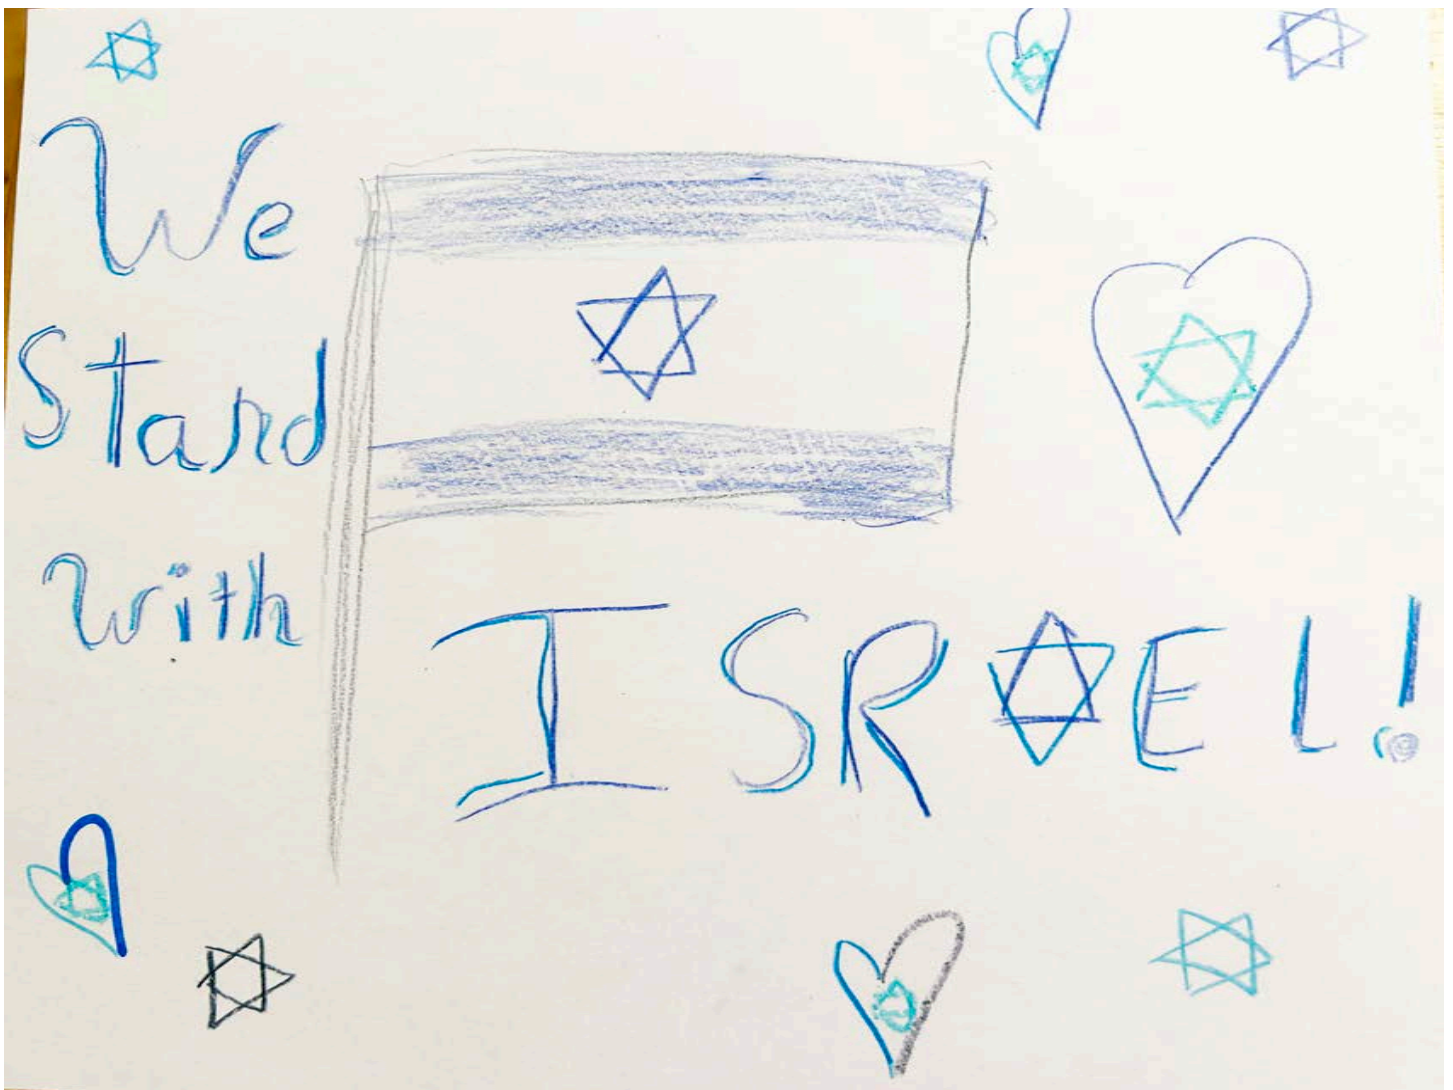 We
Stand
with
ISR✡EL!